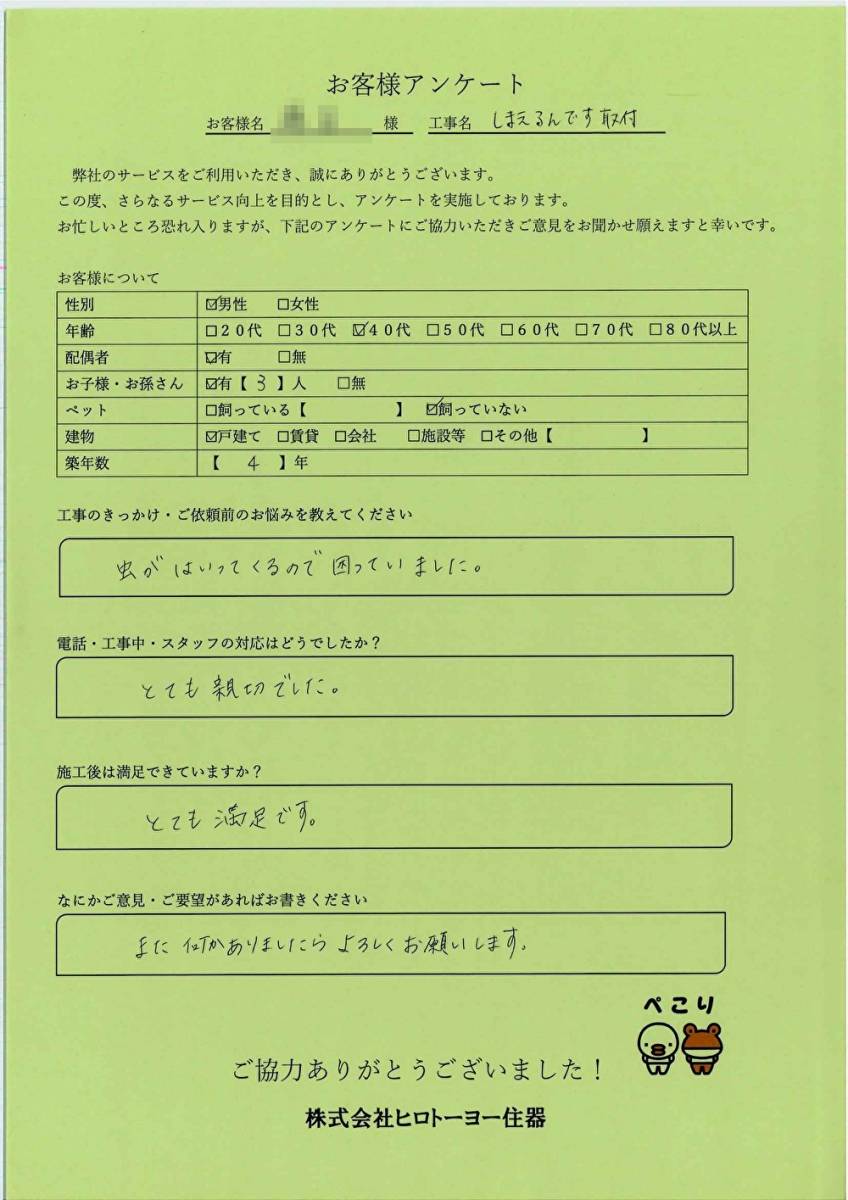 お客様アンケート
お客様名 様 工事名 しまえるんです取付
弊社のサービスをご利用いただき、誠にありがとうございます。
この度、さらなるサービス向上を目的とし、アンケートを実施しております。
お忙しいところ恐れ入りますが、下記のアンケートにご協力いただきご意見をお聞かせ願えますと幸いです。
お客様について
性別 ☑男性 □女性
年齢 □20代 □30代 ☑40代 □50代 □60代 □70代 □80代以上
配偶者 ☑有 □無
お子様・お孫さん ☑有【 3 】人 □無
ペット □飼っている【 】 ☑飼っていない
建物 ☑戸建て □賃貸 □会社 □施設等 □その他【 】
築年数 【 4 】年
工事のきっかけ・ご依頼前のお悩みを教えてください
虫がはいってくるので困っていました。
電話・工事中・スタッフの対応はどうでしたか？
とても親切でした。
施工後は満足できていますか？
とても満足です。
なにかご意見・ご要望があればお書きください
また何かありましたらよろしくお願いします。
ぺこり
ご協力ありがとうございました！
株式会社ヒロトーヨー住器